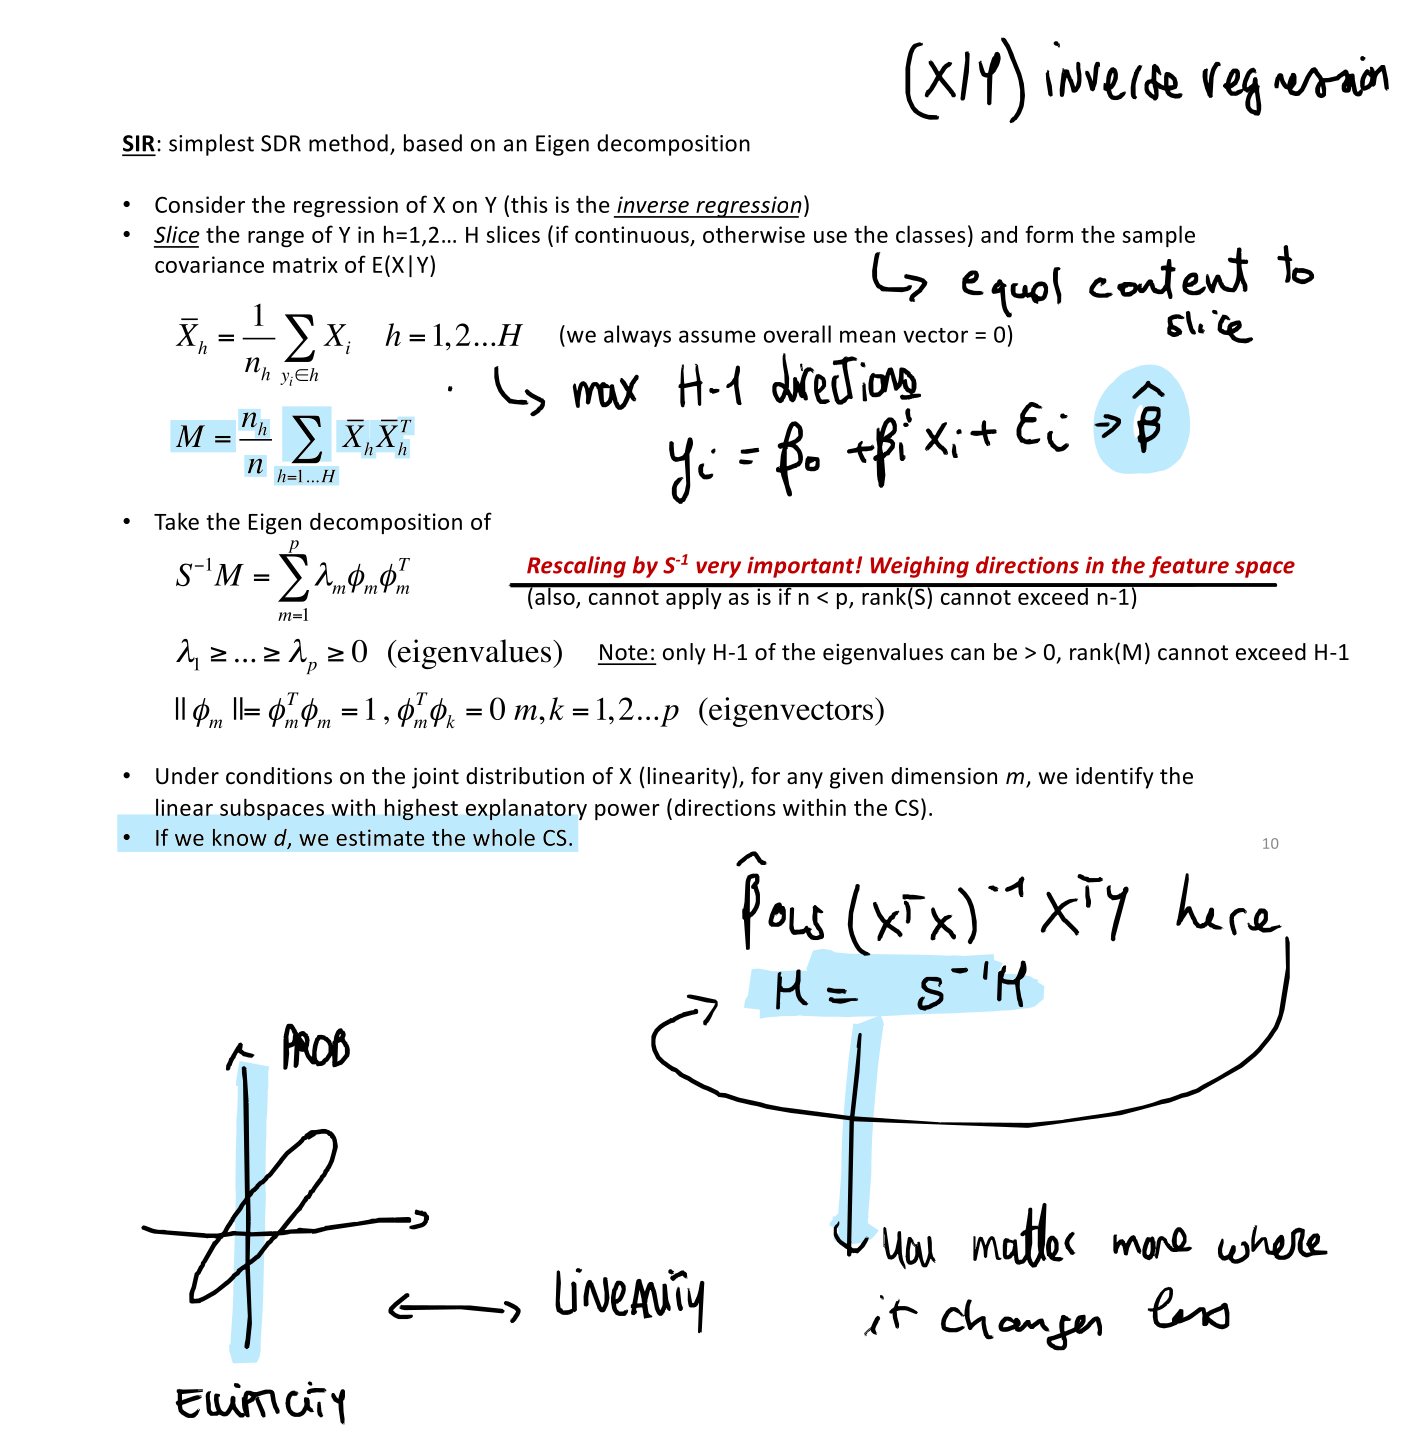 (X|Y) inverse regression
SIR: simplest SDR method, based on an Eigen decomposition
• Consider the regression of X on Y (this is the inverse regression)
• Slice the range of Y in h=1,2… H slices (if continuous, otherwise use the classes) and form the sample
covariance matrix of E(X|Y)
↳ equal content to
slice
X̄_h = 1/n_h ∑_{y_i∈h} X_i   h = 1,2...H   (we always assume overall mean vector = 0)
↳ max H-1 directions
M = n_h/n ∑_{h=1...H} X̄_h X̄_h^T
y_i = β_0 + β_i' x_i + ε_i → β̂
• Take the Eigen decomposition of
S^{-1}M = ∑_{m=1}^{p} λ_m ϕ_m ϕ_m^T
Rescaling by S^{-1} very important! Weighing directions in the feature space
(also, cannot apply as is if n < p, rank(S) cannot exceed n-1)
λ_1 ≥ ... ≥ λ_p ≥ 0 (eigenvalues)   Note: only H-1 of the eigenvalues can be > 0, rank(M) cannot exceed H-1
|| ϕ_m ||= ϕ_m^T ϕ_m = 1 , ϕ_m^T ϕ_k = 0 m,k = 1,2...p (eigenvectors)
• Under conditions on the joint distribution of X (linearity), for any given dimension m, we identify the
linear subspaces with highest explanatory power (directions within the CS).
• If we know d, we estimate the whole CS.
10
β̂ OLS (X^T X)^{-1} X^T Y here
M = S^{-1}M
PROB
you matter more where
it changes less
LINEARITY
ELLIPTICITY